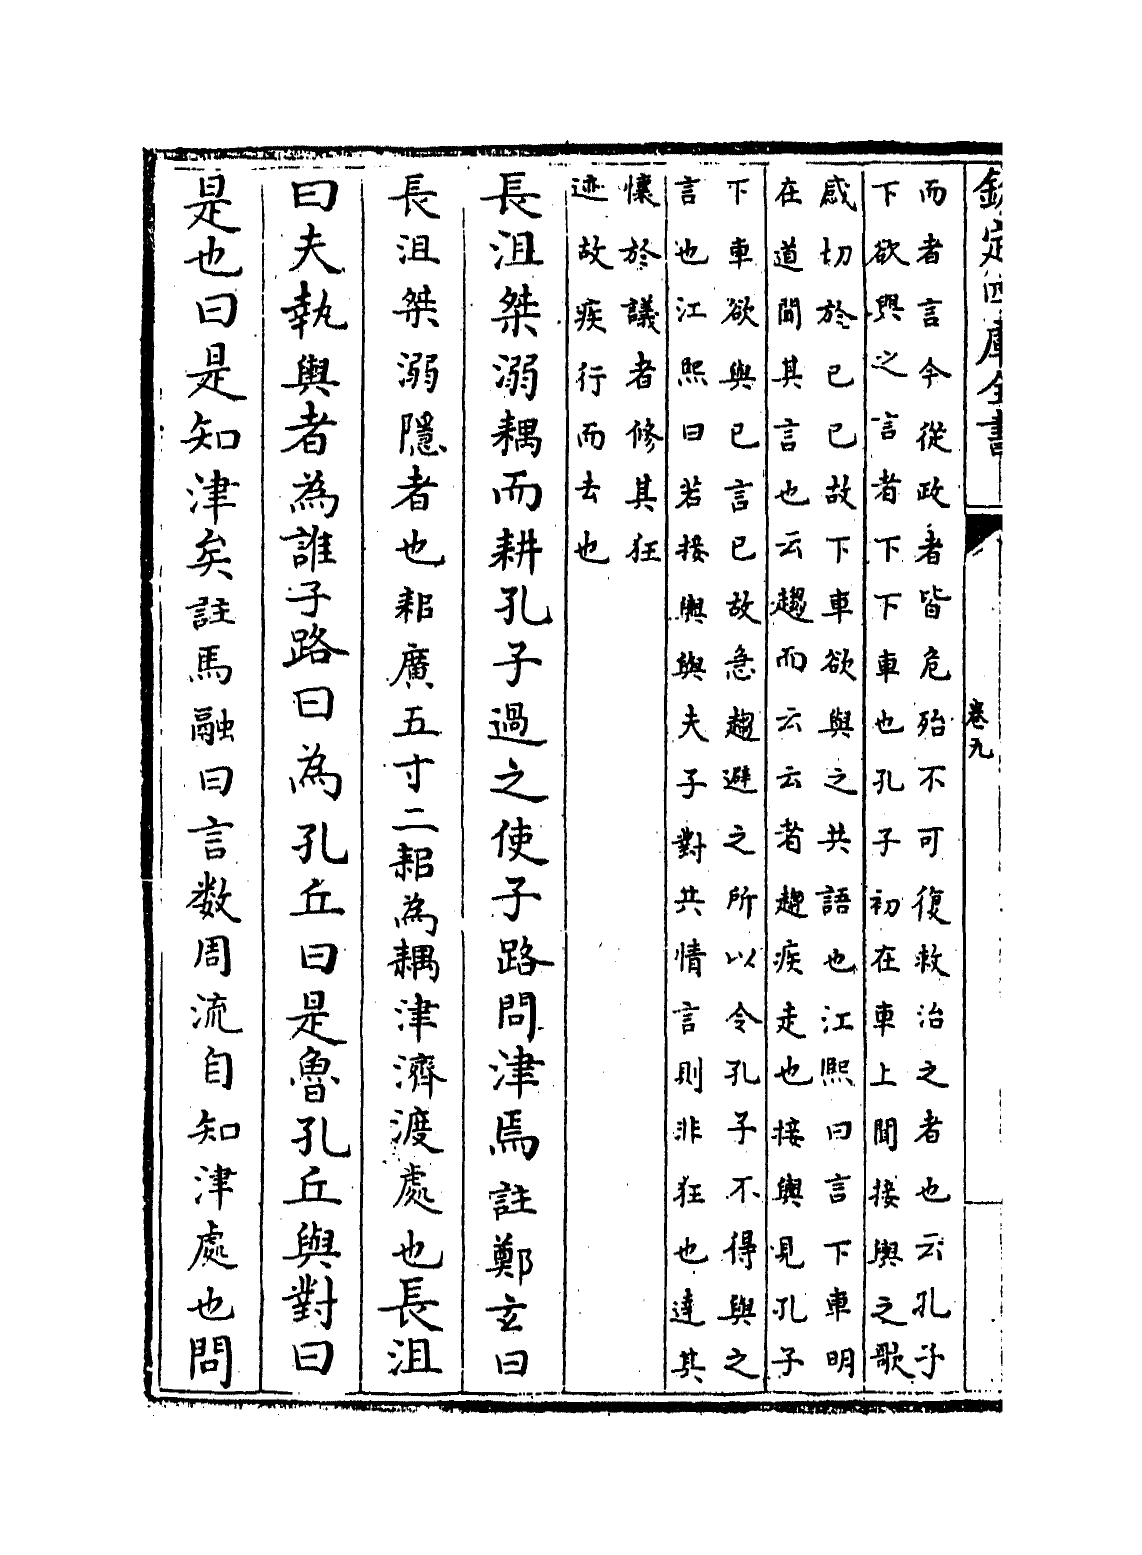 欽定四庫全書
卷九
而者言今從政者皆危殆不可復救治之者也云孔子
下欲與之言者下下車也孔子初在車上聞接輿之歌
感切於己己故下車欲與之共語也江熙曰言下車明
在道聞其言也云趨而云云者趨疾走也接輿見孔子
下車欲與己言己故急趨避之所以令孔子不得與之
言也江熙曰若接輿與夫子對共情言則非狂也達其
懷於議者修其狂
迹故疾行而去也
長沮桀溺耦而耕孔子過之使子路問津焉註鄭玄曰
長沮桀溺隱者也耜廣五寸二耜為耦津濟渡處也長沮
曰夫執輿者為誰子路曰為孔丘曰是魯孔丘與對曰
是也曰是知津矣註馬融曰言数周流自知津處也問